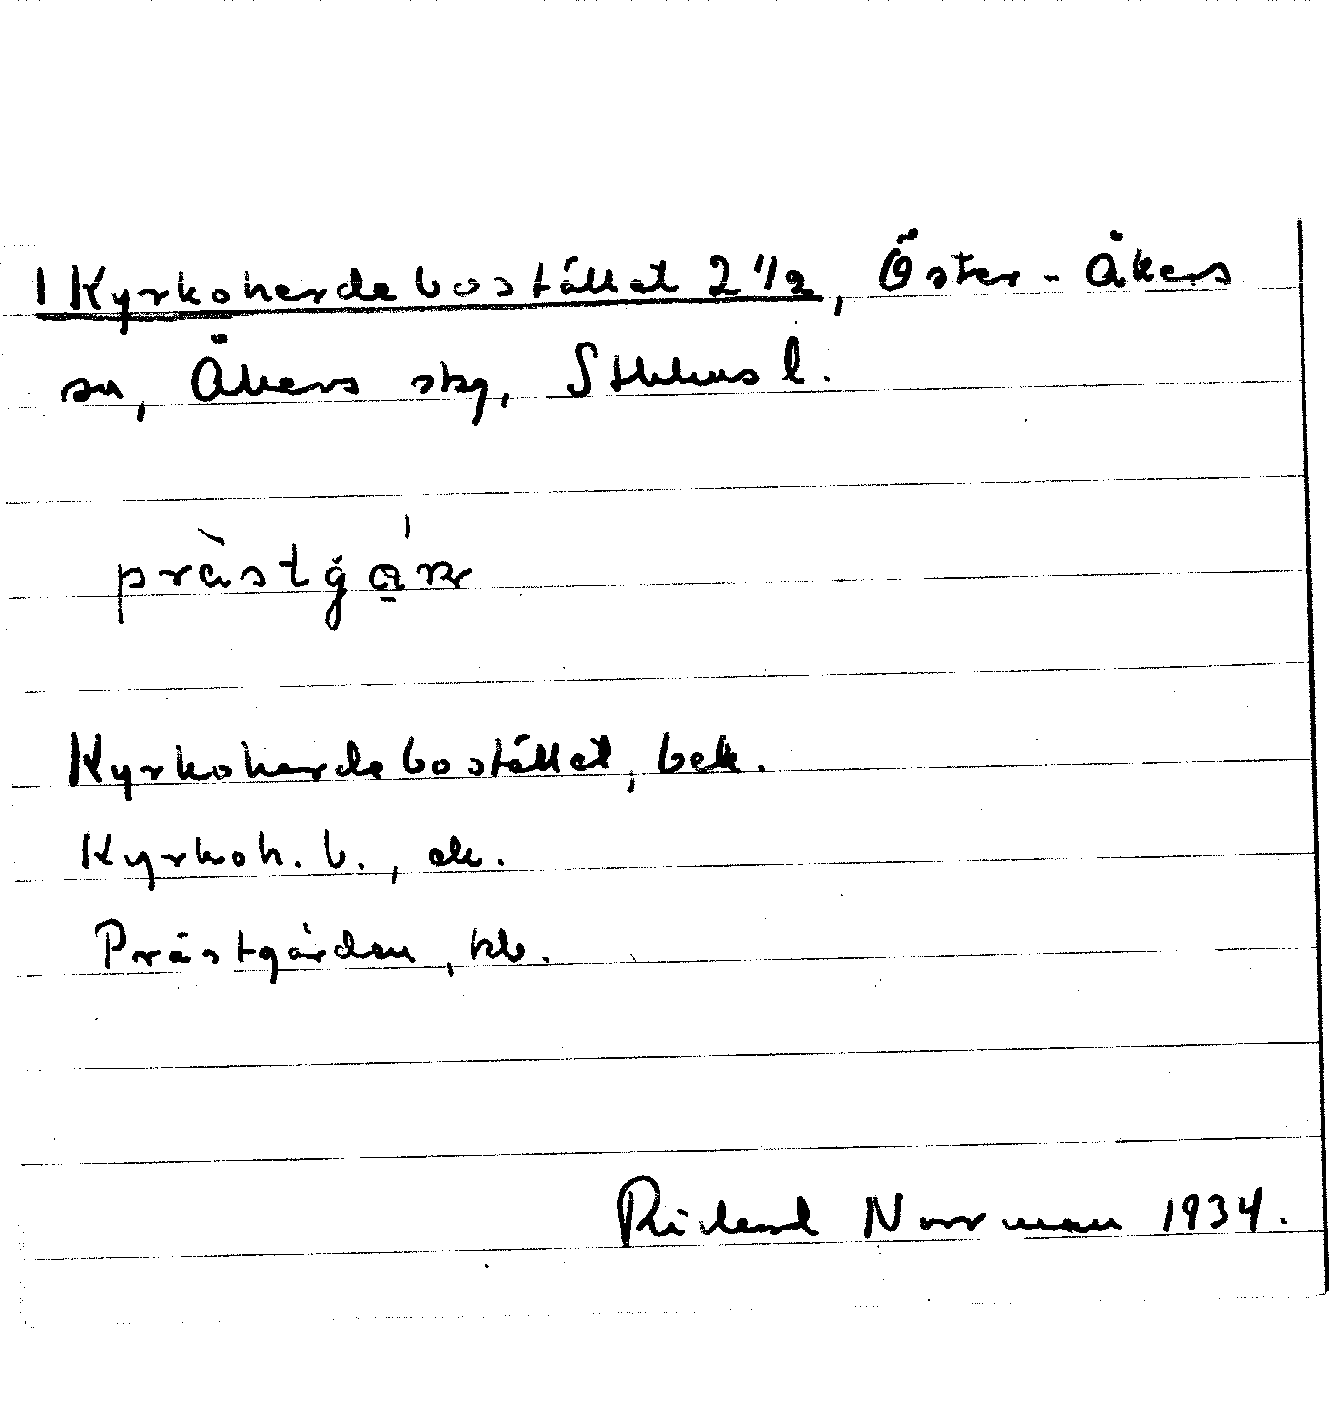 1 Kyrkoherdebostället 2 1/2, Öster-Åkers
sn, Åkers skg, Sthlms l.
Kyrkoherdebostället, bek.
Kyrkoh. b., ek.
Prästgården, kb.
Rickard Norrman 1934.